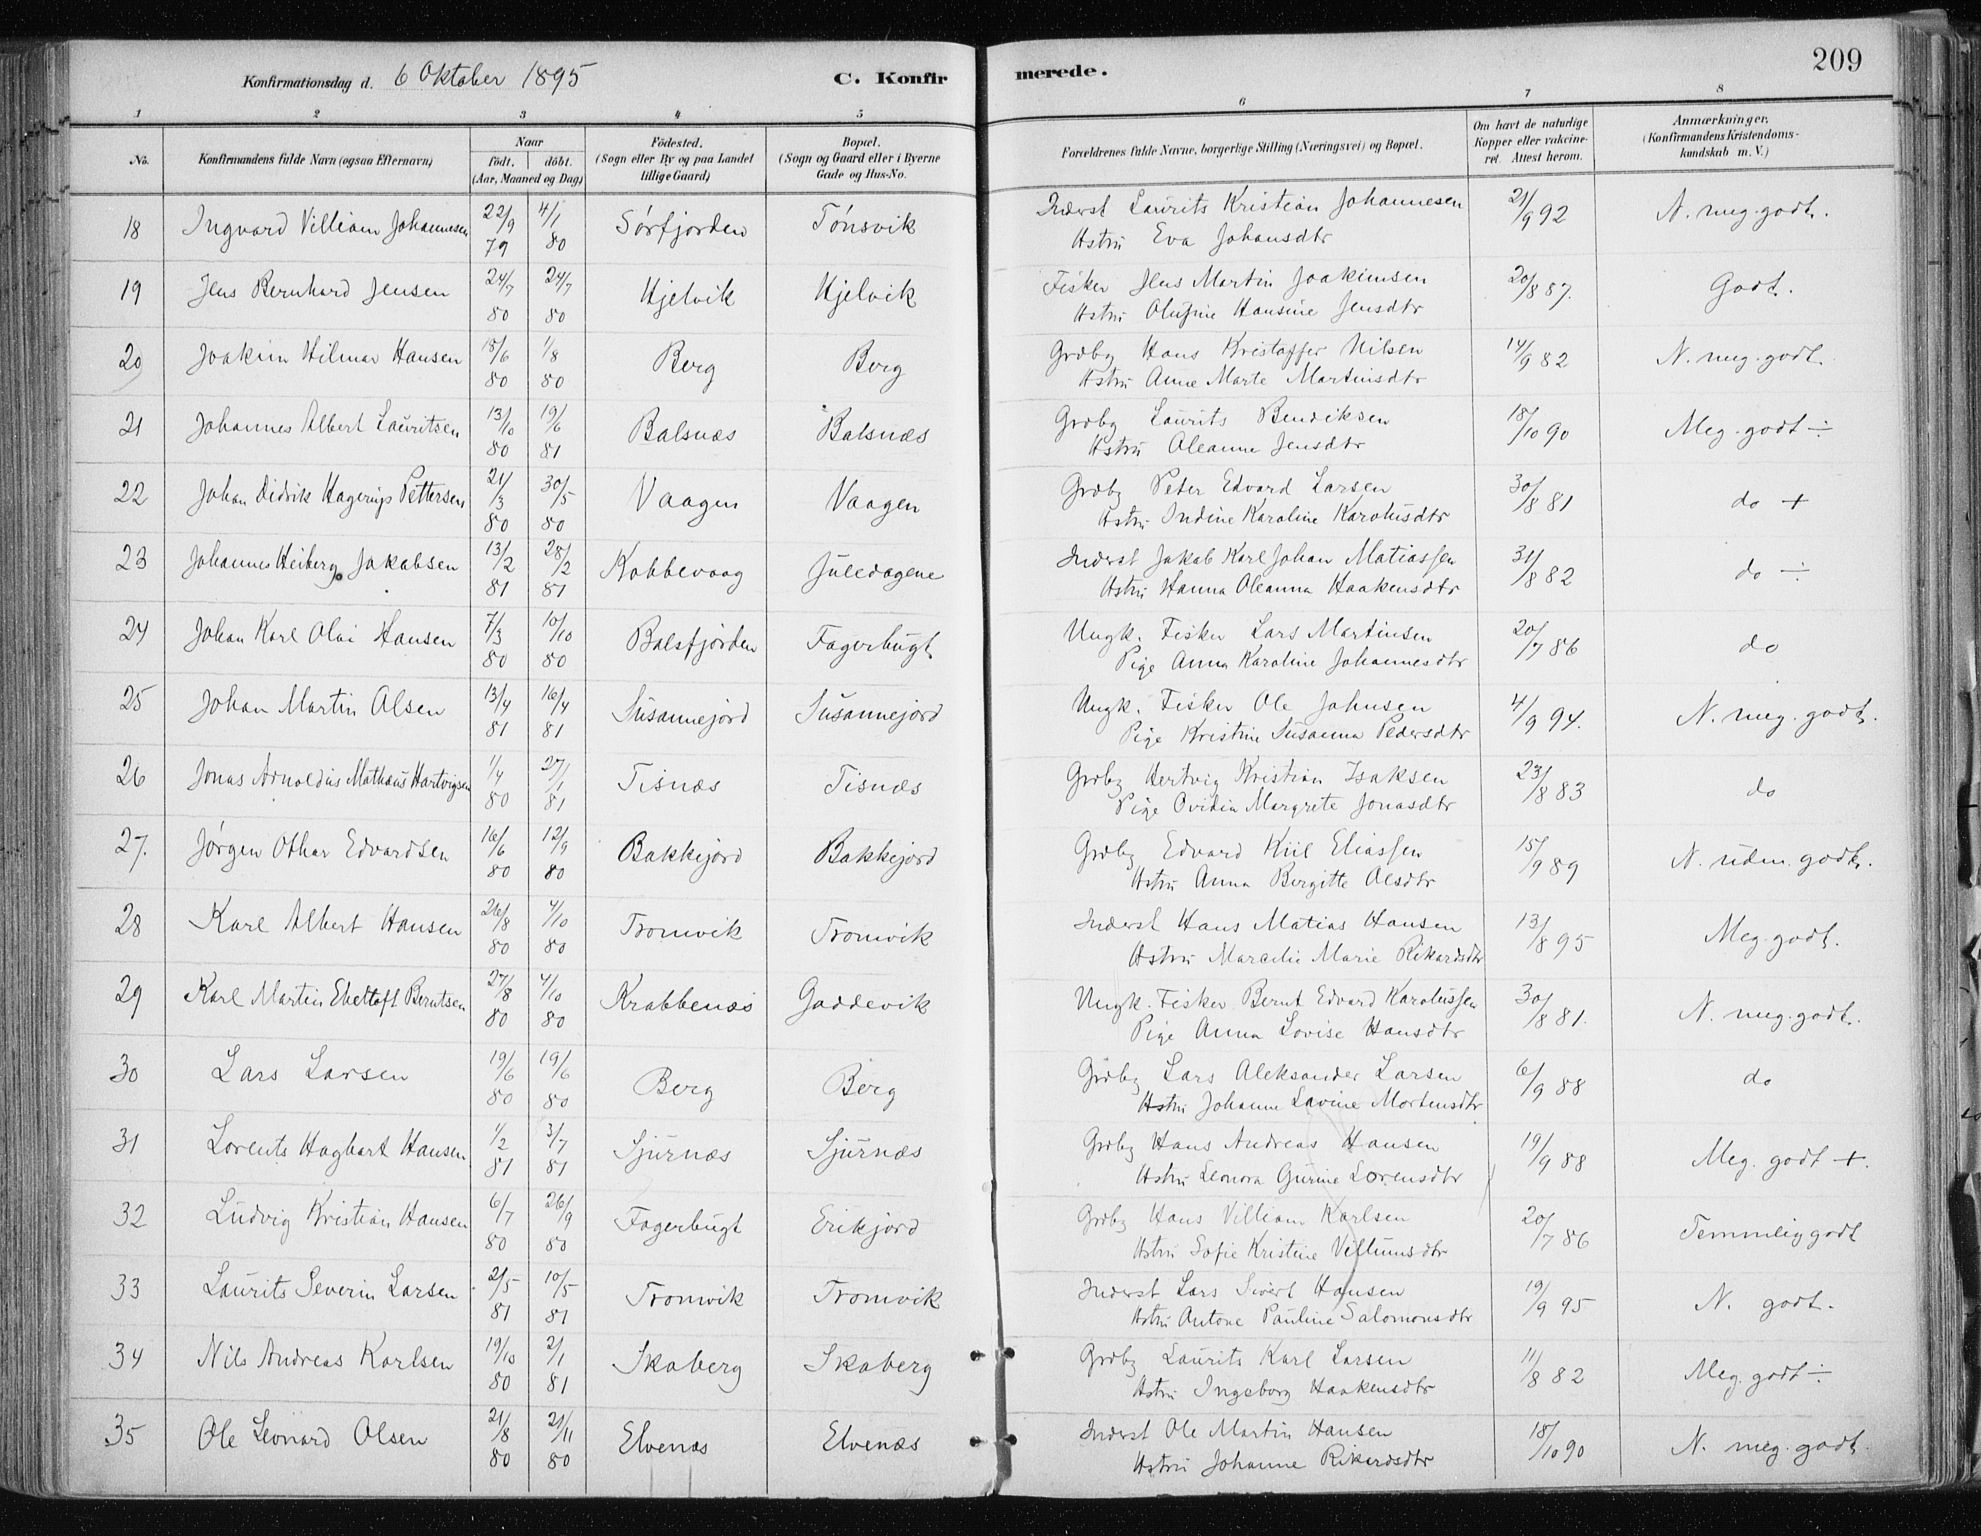 209
Konfirmationsdag d. 6 Oktober 1895 C. Konfirmerede.
1 2 3 4 5 6 7 8
No. Konfirmandens fulde Navn (ogsaa Efternavn) Naar født, døbt. (Aar, Maaned og Dag) Födested. (Sogn eller By og paa Landet tillige Gaard) Bopæl. (Sogn og Gaard eller i Byerne Gade og Hus-No. Forældrenes fulde Navne, borgerlige Stilling (Næringsvei) og Bopæl. Om havt de naturlige Kopper eller vakcineret. Attest herom. Anmærkninger. (Konfirmandens Kristendomskundskab m. V.)
18 Ingvard Villiam Johannesen 22/9 79 4/1 80 Sørfjorden Tønsvik Inderst Laurits Kristian Johannesen 21/9 92 N. meg. godt.
Hstru Eva Johansdtr
19 Jens Bernhard Jensen 24/7 80 24/7 80 Hjelvik Hjelvik Fisker Jens Martin Joakimsen 20/8 87. Godt.
Hstru Olufine Hansine Jensdtr
20 Joakim Hilmar Hansen 18/6 80 1/8 80 Berg Berg Grdbg Hans Kristoffer Nilsen 14/9 82 N. meg. godt.
Hstru Anne Marte Martinsdtr
21 Johannes Albert Lauritsen 13/10 80 19/6 81 Balsnæs Balsnæs Grdbg Laurits Bendiksen 18/10 90 Meg. godt ÷
Hstru Oleanna Jensdtr
22 Johan Didrik Hagerup Pettersen 21/3 80 30/5 80 Vaagen Vaagen Grdbg Peter Edvard Larsen 30/8 81 do +
Hstru Indine Karoline Karolusdtr
23 Johannes Heiberg Jakobsen 13/2 81 28/2 81 Kobbevaag Juledagene Inderst Jakob Karl Johan Matiassen 31/8 82 do ÷
Hstru Hanna Oleanna Haakensdtr
24 Johan Karl Olai Hansen 7/3 80 10/10 80 Balsfjorden Fagerbugt Ungk. Fisker Lars Martinsen 20/7 86 do
Pige Anna Karoline Johannesdtr
25 Johan Martin Olsen 13/4 81 16/4 81 Susannejord Susannejord Ungk. Fisker Ole Johnsen 4/9 94. N. meg. godt.
Pige Kristine Susanna Pedersdtr
26 Jonas Arnoldus Mathæus Hartvigsen 1/4 80 27/1 81 Tisnæs Tisnæs Grdbg Hertvig Kristian Isaksen 23/8 83 do
Pige Ovidia Margrete Jonasdtr
27. Jørgen Othar Edvardsen 16/6 80 12/9 80 Bakkejord Bakkejord Grdbg Edvard Kiil Eliassen 15/9 89 N. udm. godt.
Hstru Anna Bergitte Olsdtr
28 Karl Albert Hansen 26/8 80 4/10 80 Tromvik Tromvik Inderst Hans Matias Hansen 13/8 95 Meg. godt.
Hstru Marcilie Marie Rikardsdtr
29 Karl Martin Ebeltoft Berntsen 27/8 80 4/10 80 Krabbenæs Gaddevik Ungk. Fisker Bernt Edvard Karolussen 30/8 81. N. meg. godt.
Pige Anna Lovise Hansdtr
30 Lars Larsen 19/6 80 19/6 80 Berg Berg Grdbg Lars Aleksander Larsen 6/9 88 do
Hstru Johanne Lavine Mortensdtr
31 Lorents Hagbart Hansen 1/2 81 3/7 81 Sjurnæs Sjurnæs Grdbg Hans Andreas Hansen 19/9 88 Meg. godt +.
Hstru Leonora Gurine Lorensdtr
32 Ludvig Kristian Hansen 6/7 80 26/9 80 Fagerbugt Erikjord Grdbg Hans Villiam Karlsen 20/7 86 Temmelig godt
Hstru Sofie Kristine Villumsdtr
33 Laurits Severin Larsen 2/5 81 10/5 81 Tromvik Tromvik Inderst Lars Sivert Hansen 19/9 95 N. godt.
Hstru Antone Pauline Salomonsdtr
34 Nils Andreas Karlsen 19/10 80 2/1 81 Skaberg Skaberg Grdbg Laurits Karl Larsen 11/8 82 Meg. godt ÷
Hstru Ingeborg Haakensdtr
35 Ole Leonard Olsen 21/8 80 21/11 80 Elvenæs Elvenæs Inderst Ole Martin Hansen 18/10 90 N. meg. godt.
Hstru Johanne Rikardsdtr